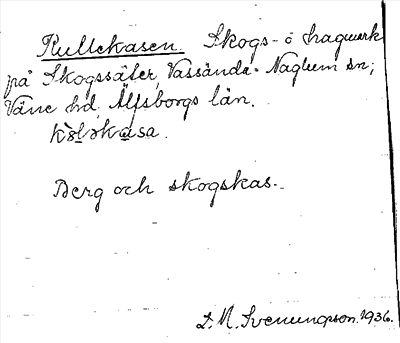 Kullekasen. Skogs- o hagmark
på Skogssäter, Vassända-Naglum sn;
Väne hd. Älfsborgs län.
Berg och skogskas.
D. M. Svenungson. 1936.